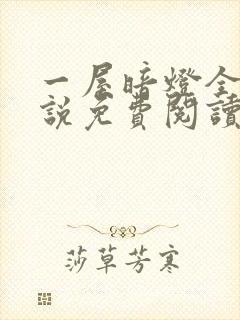 一屋暗燈全
說免費閱讀
莎草芳寒